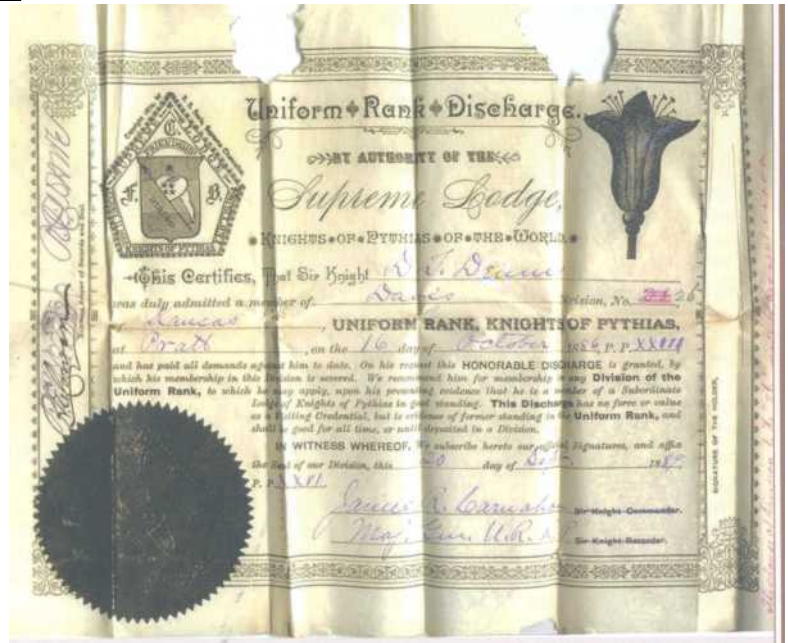 Uniform Rank Discharge.
BY AUTHORITY OF THE
Supreme Lodge,
KNIGHTS OF PYTHIAS OF THE WORLD.
F. C. B.
FRIENDSHIP
KNIGHTS OF PYTHIAS
This Certifies, That Sir Knight D. F. Dennis
was duly admitted a member of Davis Division, No. 21 26
of Kansas, UNIFORM RANK, KNIGHTS OF PYTHIAS,
at Pratt, on the 16 day of October 1886 P. P. XXIII
and has paid all demands against him to date. On his request this HONORABLE DISCHARGE is granted, by
which his membership in this Division is severed. We recommend him for membership in any Division of the
Uniform Rank, to which he may apply, upon his presenting evidence that he is a member of a Subordinate
Lodge of Knights of Pythias in good standing. This Discharge has no force or value
as a Visiting Credential, but is evidence of former standing in the Uniform Rank, and
shall be good for all time, or until deposited in a Division.
IN WITNESS WHEREOF, We subscribe hereto our official Signatures, and affix
the Seal of our Division, this 20 day of Sept. 1889
P. P. XXVI
James R. Carnahan Sir Knight Commander.
Maj. Gen. U. R. K. P. Sir Knight Recorder.
SIGNATURE OF THE HOLDER.